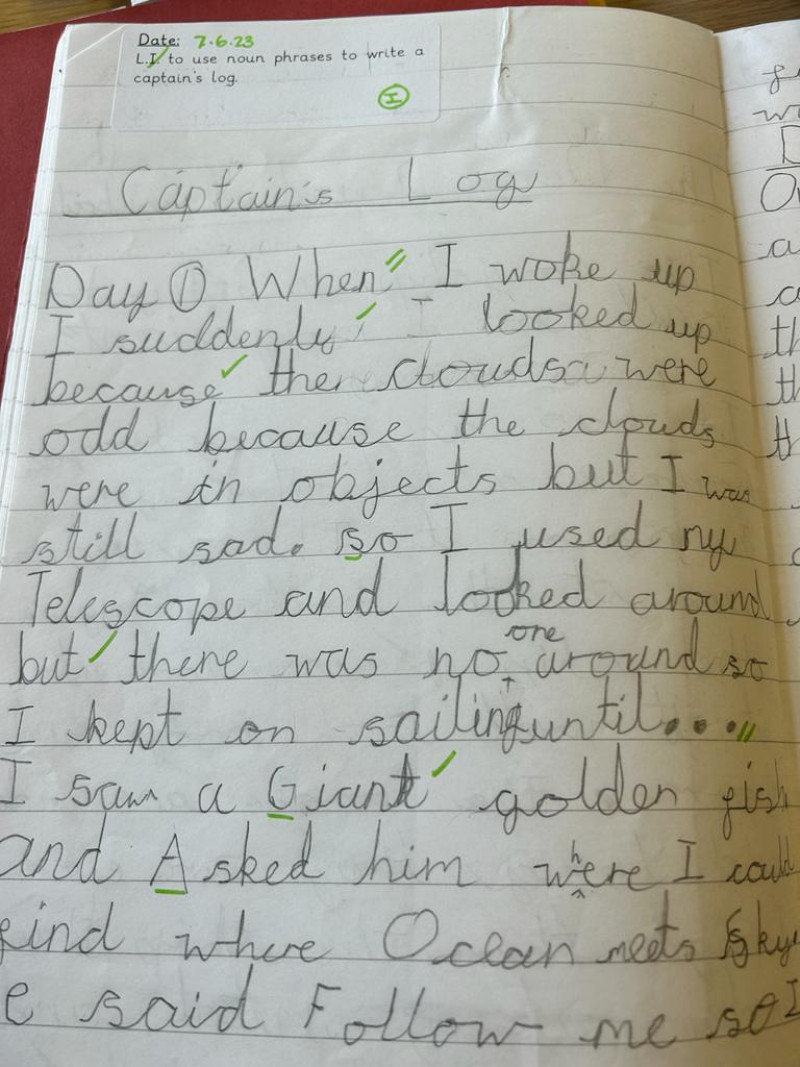 Date: 7.6.23
L.I. to use noun phrases to write a
captain's log.
I
Captain's Log
Day 1 When I woke up
I suddenly I looked up
because the clouds were
odd because the clouds
were in objects but I was
still sad. so I used my
Telescope and looked around
but there was no one around so
I kept on sailing until...
I saw a Giant golden fish
and Asked him where I could
find where Ocean meets Sky
e said Follow me so I